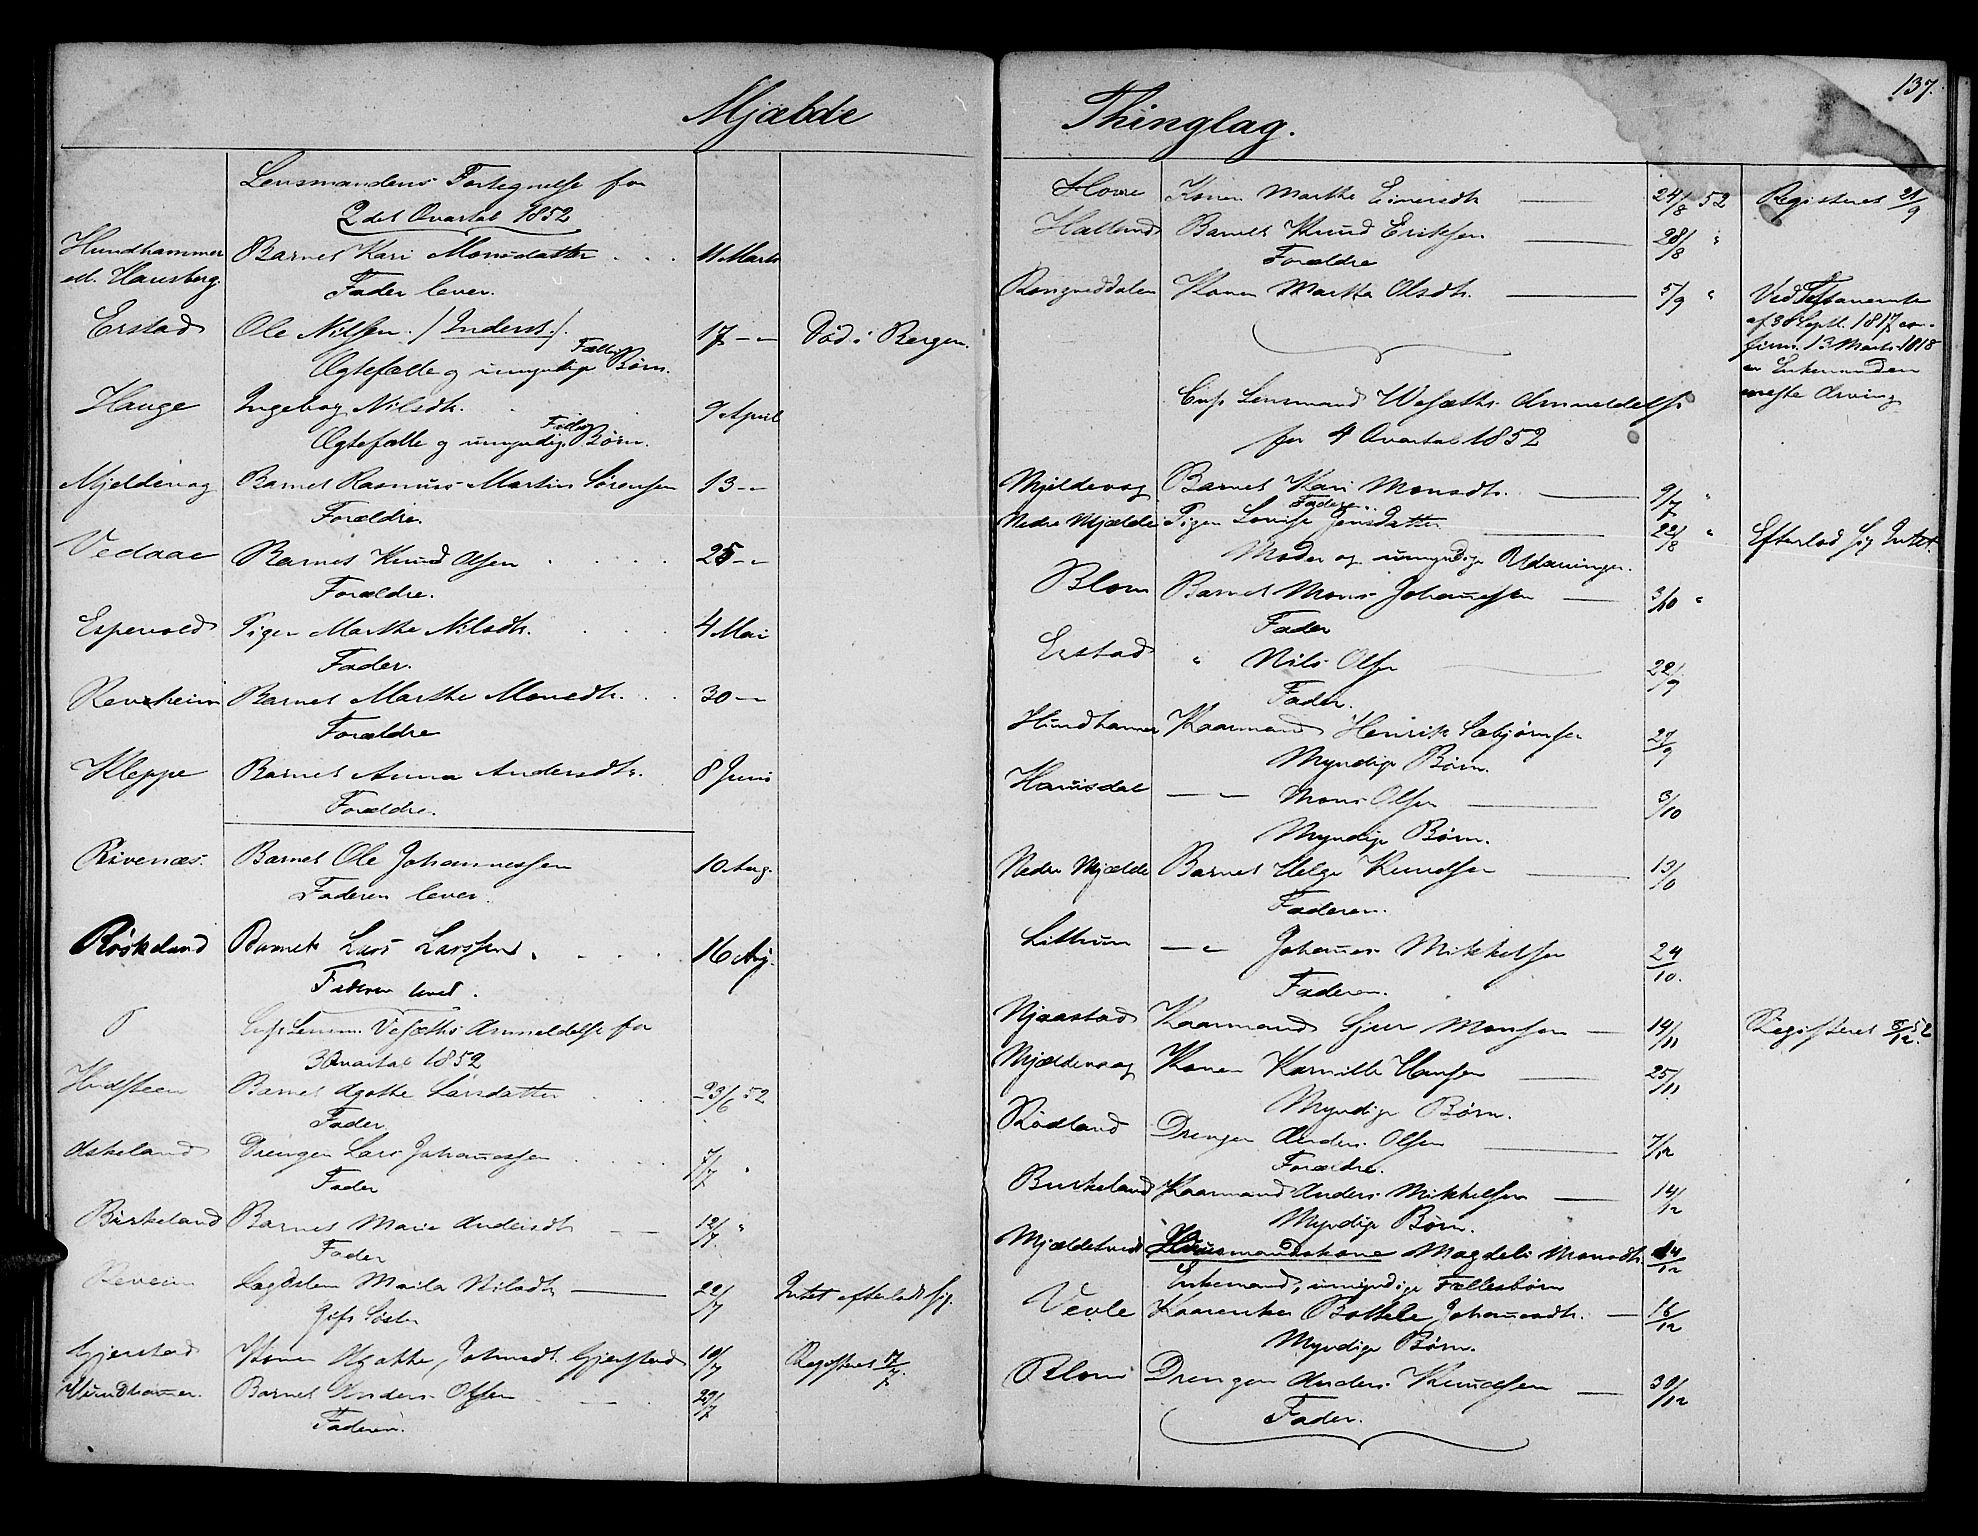 Mjælde
Lensmandens Fortegnelse for
2det Qvartal 1852
Hundhammer Barnet Kari Monsdatter 11 Marts
ell. Hausberg. Fader lever.
Erstad Ole Nilssen. /Inderst/. 17 -"- Død i Bergen.
Ægtefælle og umyndige Fælles Børn.
Hauge Ingeborg Nilsdtr. 9 April
Ægtefælle og umyndige Fælles Børn.
Mjeldevog Barnet Rasmus Martin Sørensen 13 -"-
Forældre.
Vedaae Barnet Knud Olsen 25 -"-
Forældre.
Espevold Pigen Marthe Nilsdtr. 4 Mai
Fader.
Revheim Barnet Marthe Monsdtr. 30 -"-
Forældre
Kleppe Barnet Anna Andersdtr. 8 Juni
Forældre.
Rivenæs. Barnet Ole Johannessen 10 Aug.
Faderen lever.
Røskeland Barnet Lars Larssen. 16 Aug.
Faderen leved.
Lensm. Vefæths Anmeldelse for
3 Qvartal 1852
Barnet Agathe Larsdatter 23/6 52
Fader
Askeland Drengen Lars Johannessen 7/7 "
Fader
Birkeland Barnet Marie Andersdtr 12/7 "
Fader
Reveim Nilsdtr 22/7 Intet efterladt sig.
Gjerstad Konen Agathe Johnsdt. Gjerstad 10/7 Registeret 17/7.
Hundhamer. Barnet Anders Olsen 29/7
Faderen.
137.
Thinglag.
Hovre Konen Marthe Einersdtr 24/8 52 Registeret 21/9
Halland Barnet Knud Eriksen 28/8 "
Forældre
Konen Martha Olsdtr. 5/9 " Ved Testamente
af 30 Sept. 1817 con-
firm. 13 Marts 1818
er Enkemanden
neste Arving
Lensmand Vefæths Anmeldelse
for 4 Qvartal 1852
Mjeldevog Barnet Kari Monsdtr. 9/7 "
Faderen
Nedre Mjælde Pigen Lovise Jensdatter 22/8 " Efterlod sig Intet.
Moder og umyndige Udarvinger.
Blom Barnet Mons Johannessen 3/10 "
Fader
Erstad " Nils Olsen 22/9
Fader.
Hundhamer Kaarmand Henrik Sæbjørnsen 29/9
Myndige Børn.
Hausdal -"- Mons Olsen 3/10
Myndige Børn.
Nedre Mjælde Barnet Helge Knudsen 13/10
Faderen.
Littun -"- Johannes Mikkelsen 24/10.
Faderen.
Njaastad Kaarmand Giur Monsen 19/11 Registeret 8/12 52
Mjældevaag Konen Kornille Hansen 25/11
Myndige Børn.
Rødland Drengen Anders Olsen 7/12
Forældre.
Burkeland Kaarmand Anders Mikkelsen 14/12
Myndige Børn.
Mjældetvedt Huusmandskone Magdeli Monsdtr. 14/12
Enkemand, umyndige Fællesbørn
Vevle Kaarenke Bottele Johannesdtr. 16/12
Myndige Børn.
Blom Drengen Anders Knudsen 30/12
Fader.